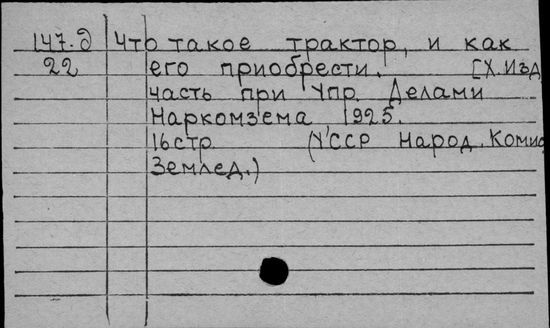 147.д Что такое трактор, и как
22 его приобрести. [Х.Изд
часть при Упр. Делами
Наркомзема 1925.
16стр. (УССР Народ. Комис
Землед.)